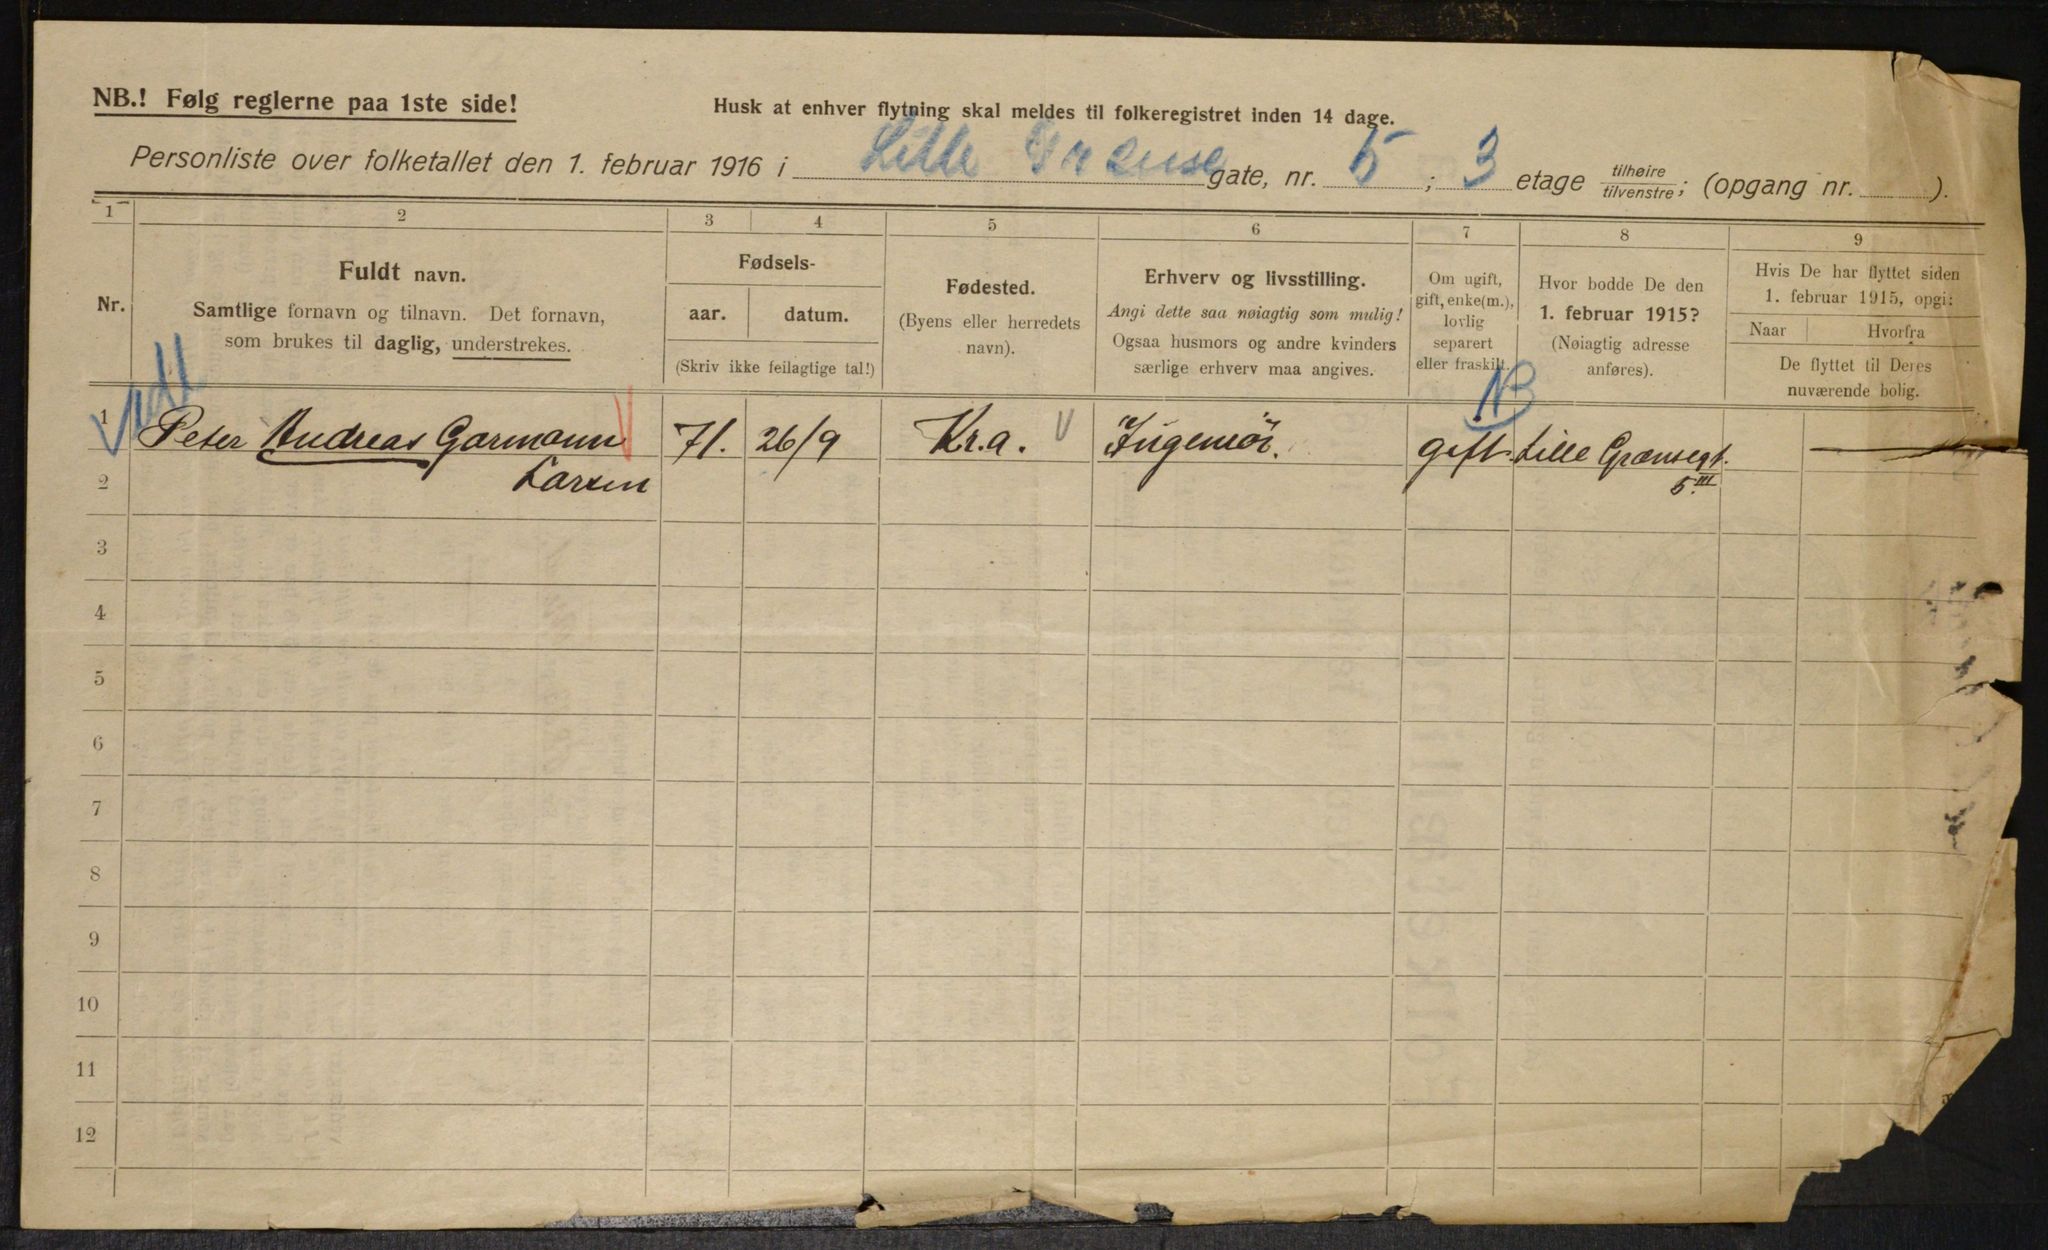 NB.! Følg reglerne paa 1ste side!
Husk at enhver flytning skal meldes til folkeregistret inden 14 dage.
Personliste over folketallet den 1. februar 1916 i Lille Grænse gate, nr. 5; 3 etage tilhøire tilvenstre; (opgang nr. ).
1 2 3 4 5 6 7 8 9
Nr.
Fuldt navn.
Samtlige fornavn og tilnavn. Det fornavn,
som brukes til daglig, understrekes.
Fødsels-
aar. datum.
(Skriv ikke feilagtige tal!)
Fødested.
(Byens eller herredets
navn).
Erhverv og livsstilling.
Angi dette saa nøiagtig som mulig!
Ogsaa husmors og andre kvinders
særlige erhverv maa angives.
Om ugift,
gift, enke(m.),
lovlig
separert
eller fraskilt.
Hvor bodde De den
1. februar 1915?
(Nøiagtig adresse
anføres).
Hvis De har flyttet siden
1. februar 1915, opgi:
Naar Hvorfra
De flyttet til Deres
nuværende bolig.
NB
1 Peter Andreas Garmann 71. 26/9 Kr.a. Ingeniør. gift Lille Grænsegt.
2 Larsen 5.III
3
4
5
6
7
8
9
10
11
12